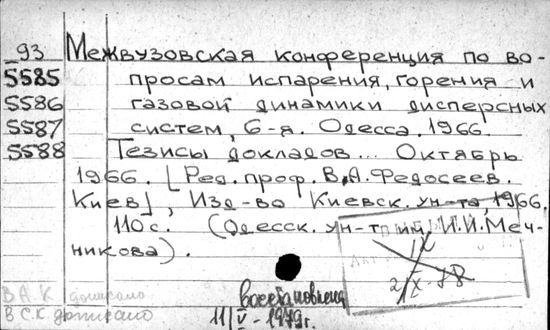 93 Межвузовская конференция по во-
5585 просам испарения, горения и
5586 газовой динамики дисперсных
5587 систем, 6-я. Одесса, 1966.
5588 Тезисы докладов... Октябрь
1966. [Ред. проф. В.А. Федосеев.
Киев], Изд-во Киевск. ун-та, 1966.
110 с. (Одесск. ун-т им. И.И. Меч-
никова).
IX
2/IX-78
В А К дописано
В С.К. дописано
восстановлена
11/V-1979г.